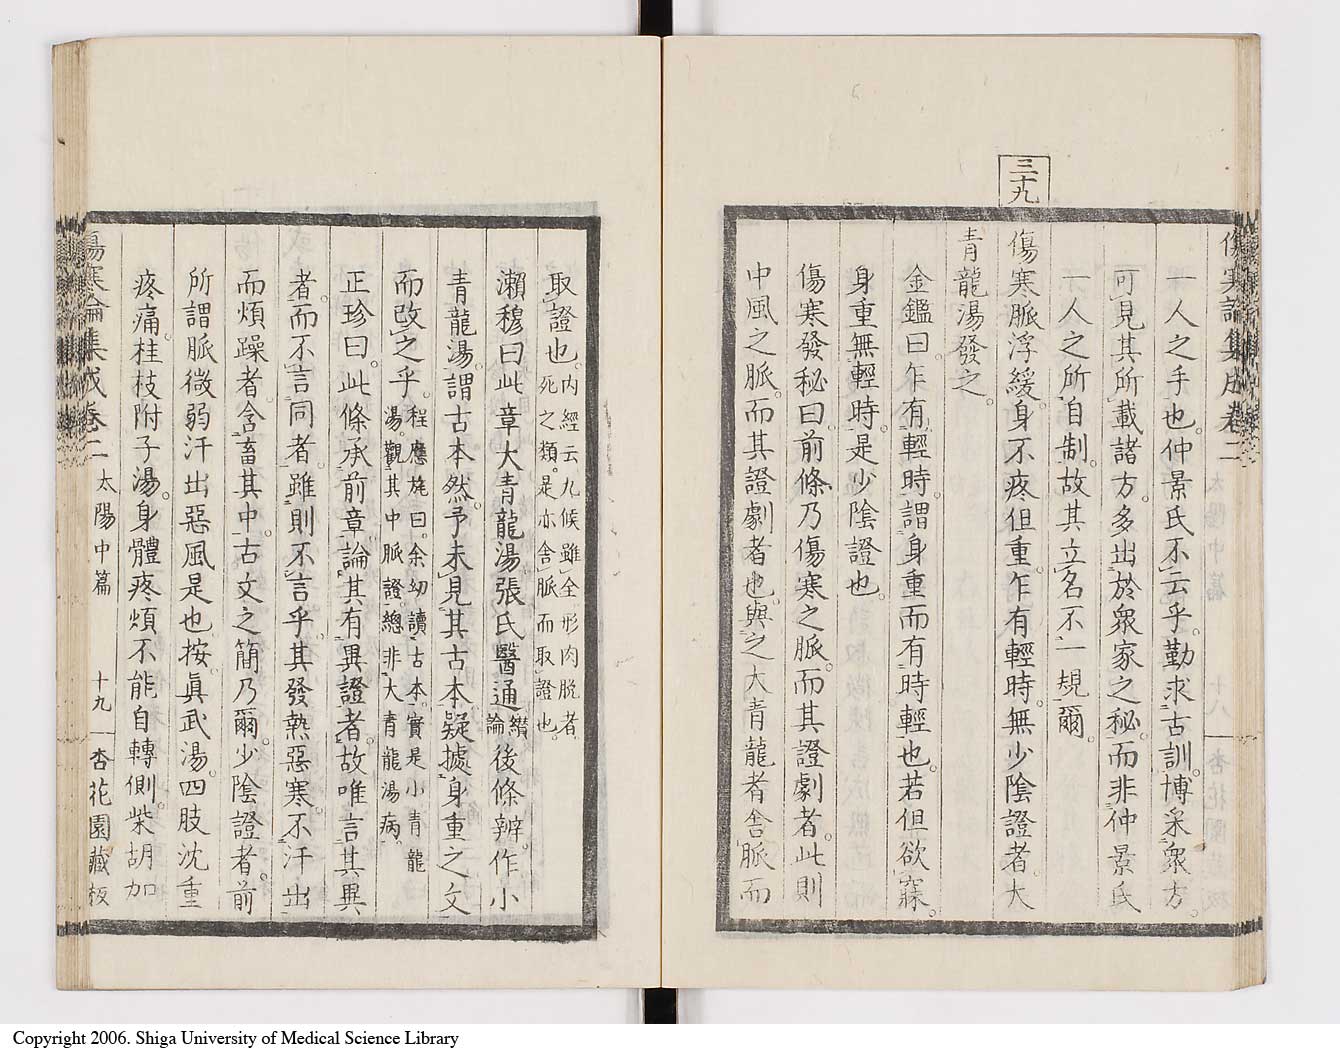 傷寒論集成卷二
一人之手也。仲景氏不云乎。勤求古訓。博采衆方。
可見其所載諸方。多出於衆家之秘。而非仲景氏
一人之所自制。故其立名不一規爾。
三十九
傷寒脈浮緩。身不疼但重。乍有輕時。無少陰證者。大
青龍湯發之。
金鑑曰。乍有輕時。謂身重而有時輕也。若但欲寐。
身重無輕時。是少陰證也。
傷寒發秘曰。前條乃傷寒之脈。而其證劇者。此則
中風之脈。而其證劇者也。與之大青龍者。舍脈而
取證也。內經云九候雖全形肉脫者
死之類。是亦舍脈而取證也。
瀨穆曰。此章大青龍湯。張氏醫通纘
論後條辨作小
青龍湯。謂古本然。予未見其古本。疑據身重之文
而改之乎。程應旄曰。余幼讀古本。實是小青龍
湯。觀其中脈證。總非大青龍湯病。
正珍曰。此條承前章。論其有異證者。故唯言其異
者。而不言同者。雖則不言乎。其發熱惡寒。不汗出
而煩躁者。含畜其中。古文之簡乃爾。少陰證者。前
所謂脈微弱汗出惡風是也。按眞武湯。四肢沈重
疼痛。桂枝附子湯。身體疼煩不能自轉側。柴胡加
傷寒論集成卷二 太陽中篇 十九 杏花園藏板
Copyright 2006. Shiga University of Medical Science Library